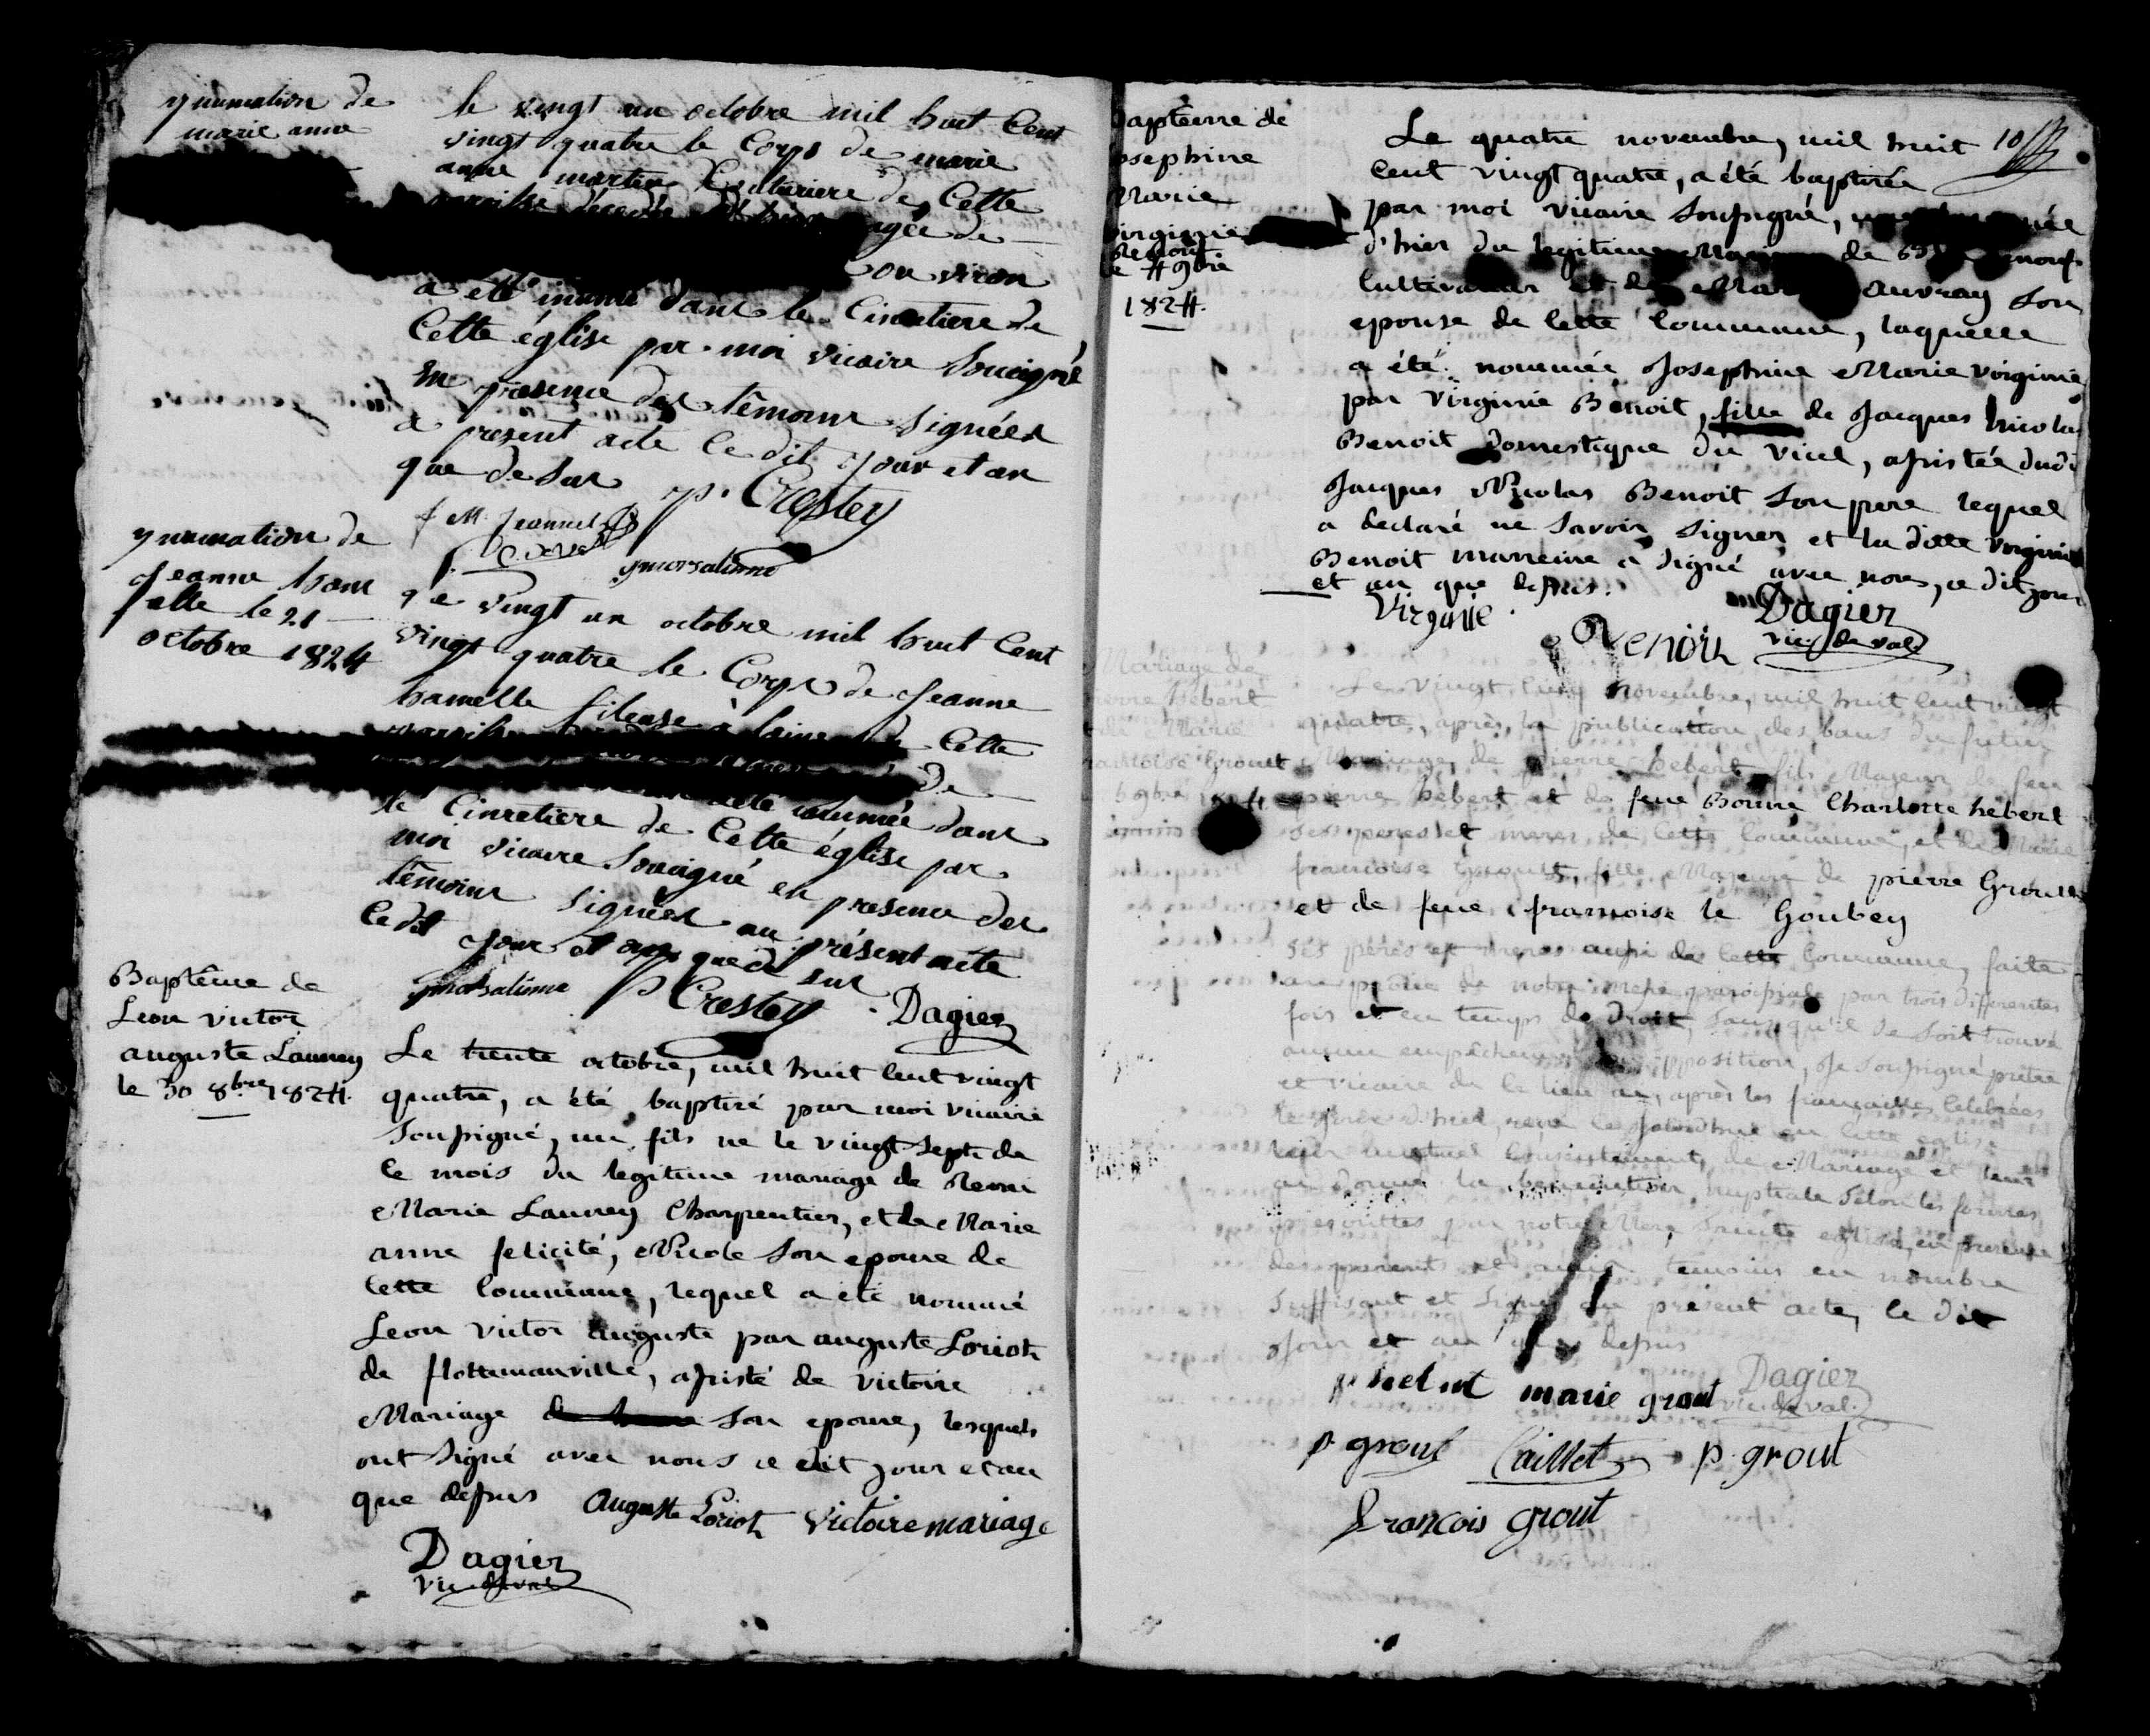 ynumation de
marie anne
le vingt un octobre mil huit Cent
vingt quatre le Corps de marie
anne martin Couturiere de Cette
paroisse décedée agée de
ou viron
a eté inumé dans le Cimetiere de
Cette église par moi vicaire Soucigné
en presence des témoins signées
a present acte Ce dit jour et an
que de sur p. Crestey
ynumation de
Jeanne hame
lle le 21
octobre 1824
Le vingt un octobre mil huit Cent
vingt quatre le Corps de Jeanne
hamelle fileuse à laine de Cette
de
été inumée dans
le Cimetiere de Cette église par
moi vicaire Soucigné en presence des
témoins signées au présent acte
Ce dit jour et an que de sur
P Crestey Dagier
Baptême de
Leon victor
auguste Launey
le 30 8bre 1824.
Le trente octobre, mil huit cent vingt
quatre, a été baptisé par moi vicaire
soussigné, un fils né le vingt sept de
ce mois du legitime mariage de Remi
Marie Launey Charpentier, et de Marie
anne felicité, Nicole son epouse de
cette commune, lequel a été nommé
Leon victor auguste par auguste Loriot
de flottemanville, assisté de victoire
Mariage son epouse, lesquels
ont signé avec nous ce dit jour et an
que dessus auguste Loriot victoire mariage
Dagier
vic de val
10
aptême de
osephine
Marie
virginie
Benoit
le 4 9bre
1824.
Le quatre novembre, mil huit
cent vingt quatre, a été baptisée
par moi vicaire soussigné,
d'hier du legitime Mariage de
cultivateur et de auvray son
epouse de cette commune, laquelle
a été nommée Josephine Marie virginie
par virginie Benoit, fille de Jacques nicolas
Benoit domestique du vicel, assistée dudi
Jacques Nicolas Benoit son pere lequel
a declaré ne savoir signer et la dite virginie
Benoit marreine a signé avec nous, ce dit jour
et an que dessus.
Virginie Benoit Dagier
vic. de val
Mariage de
ierre hébert
de Marie
ancoise Grouet
Le vingt cinq novembre, mil huit cent vingt
quatre, après la publication des bans du futur
Mariage de pierre hébert fils Majeur de feu
pierre hébert et de feue Bonne Charlotte hébert
ses peres et meres de cette commune, et de Marie
francoise fille Majeure de pierre Groult
et de feue francoise le Goubey
ses pères et meres aussi de cette commune, faite
au prône de notre messe paroissiale par trois differentes
fois et en temps de droit, sans qu'il se soit trouvé
aucun empêchement opposition, Je soussigné prêtre
et vicaire de ce lieu ai, après les fiançailles celebrées
le jour d'hier, reçu ce jourd'hui en cette eglise
leur mutuel consentement de Mariage et leur
ai donné la benediction nuptiale selon les formes
prescrittes par notre Mère Sainte eglise, en presence
des parents et amis temoins en nombre
suffisant et signés au présent acte, le dit
jour et an que dessus
p hebert marie grout Dagier
vic. de val.
p. grout Caillet p. grout
francois grout